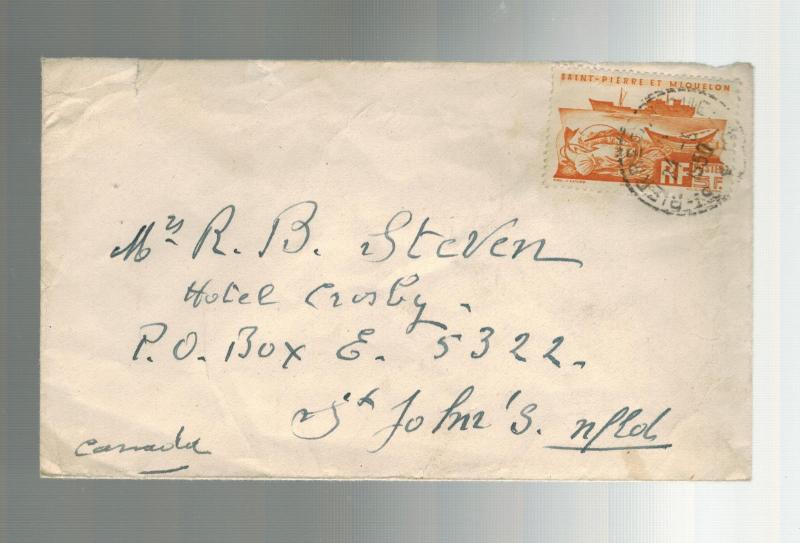 SAINT-PIERRE ET MIQUELON
RF
POSTES
Mrs R. B. Steven
Hotel Crosby.
P.O. Box E. 5322.
St John's. nfld
Canada